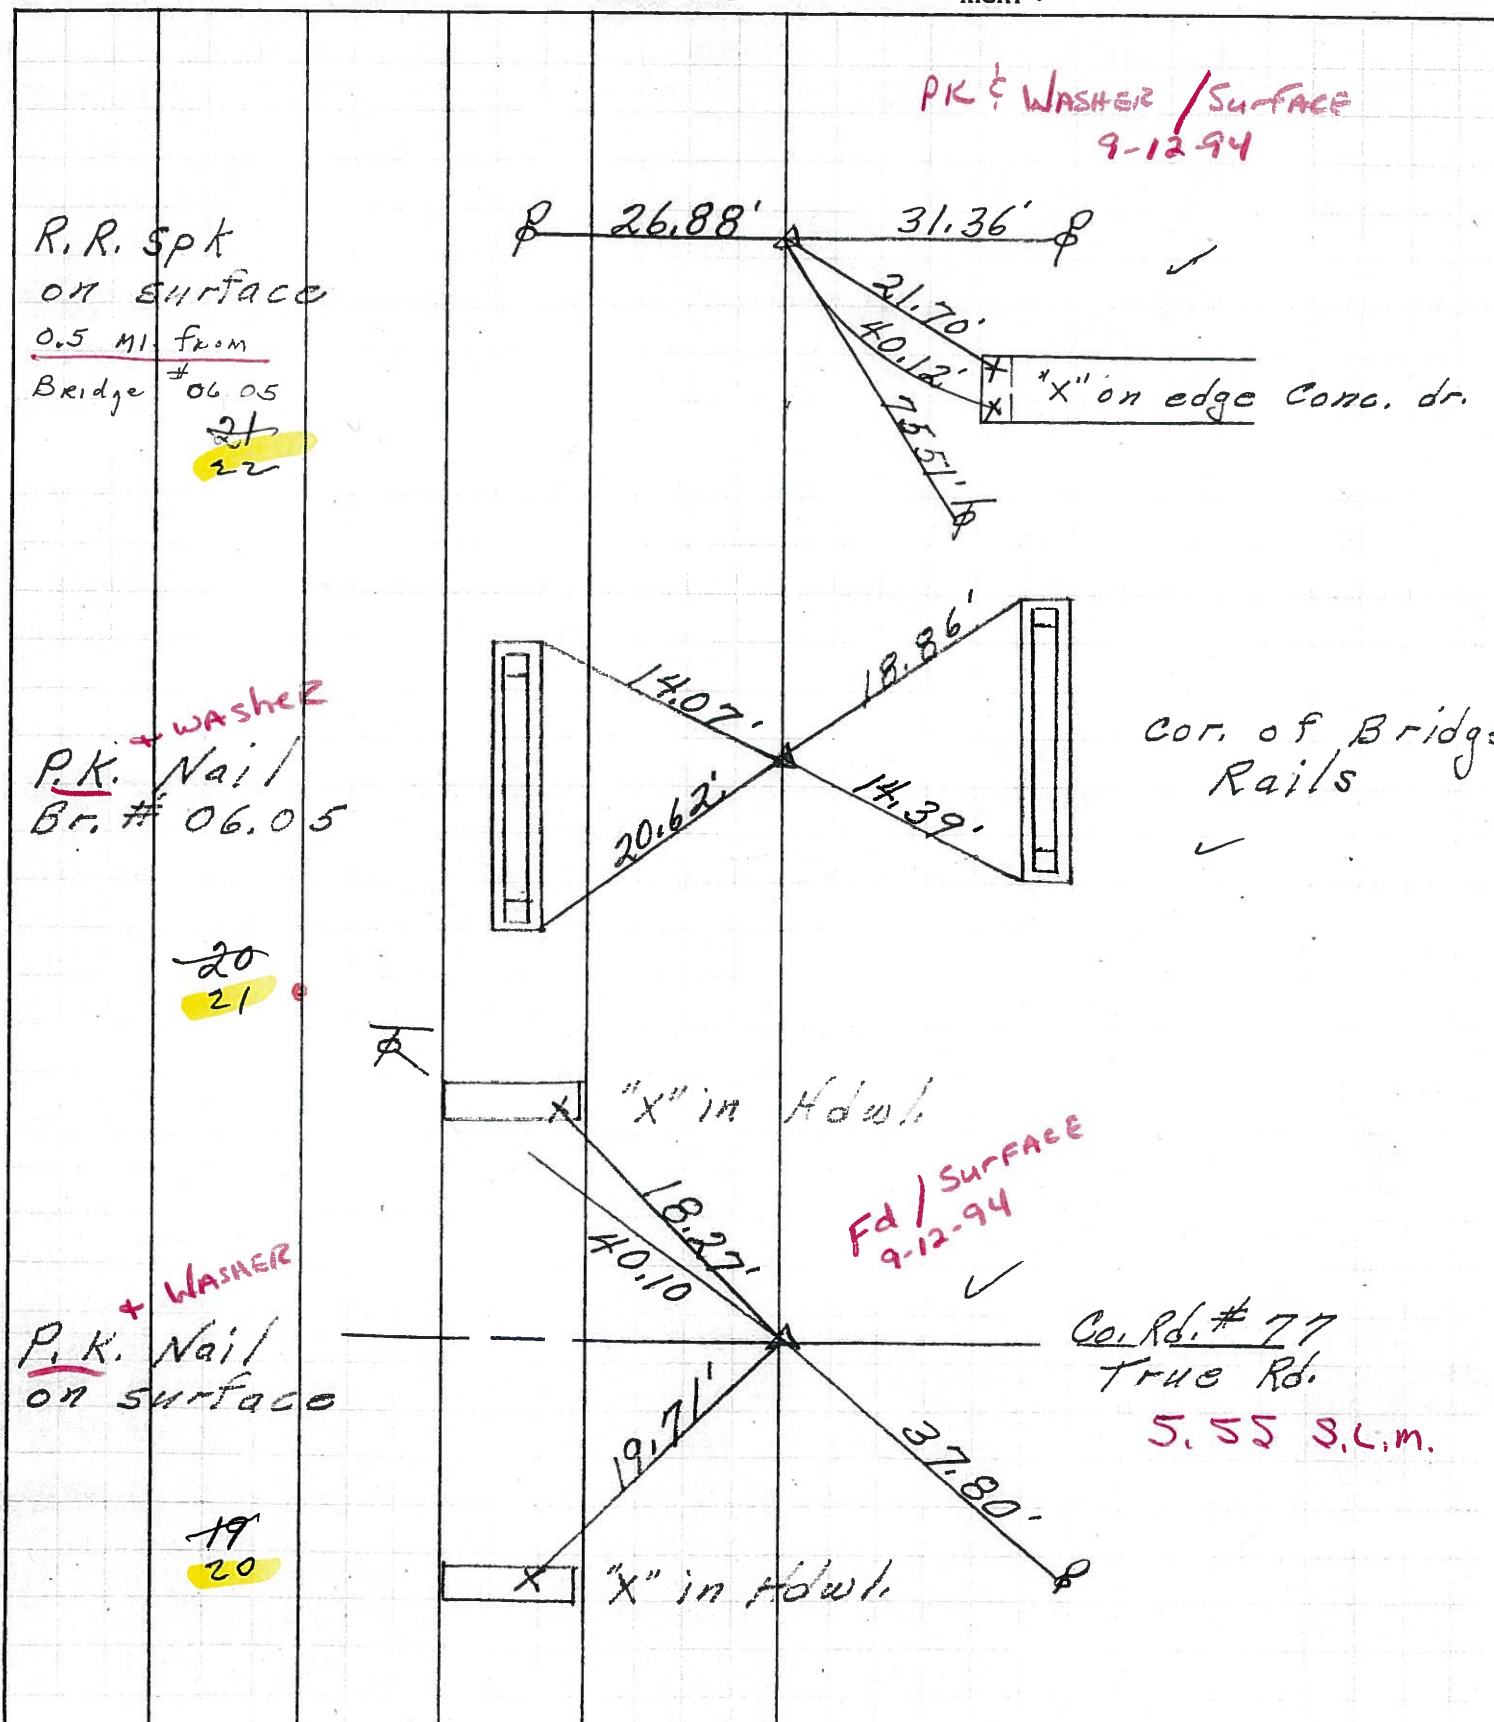 PK & WASHER / SurFACE
9-12-94
26.88' 31.36'
R.R. Spk
on surface
0.5 MI. from
Bridge #06.05
21
22
21.70'
40.12'
75.51'
"X" on edge Conc. dr.
14.07' 18.86'
+ WASHER
P.K. Nail
Br. # 06.05
20.62' 14.39'
Cor. of Bridge
Rails
20
21
"X" in Hdwl.
18.27'
40.10
Fd / SurFACE
9-12-94
+ WASHER
P.K. Nail
on surface
Co. Rd. # 77
True Rd.
5.55 S.L.M.
19.71' 37.80'
19
20
"X" in Hdwl.